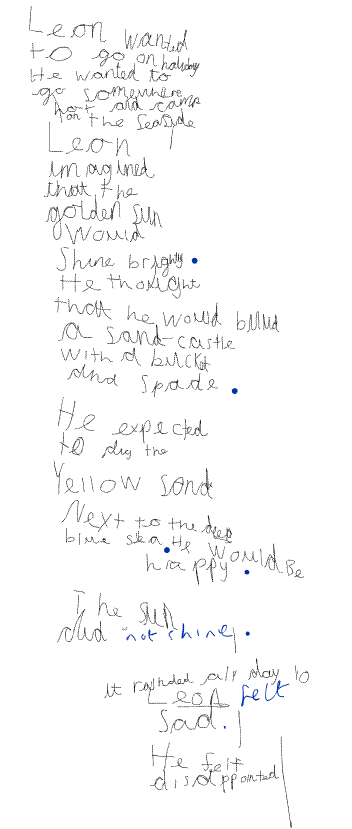 Leon wanted
to go on holiday
He wanted to
go somewhere
hot and camp
on the seaside
Leon
imagined
that the
golden sun
would
Shine brightly.
He thought
that he would build
a sand castle
with a bucket
and spade.
He expected
to dig the
Yellow sand
Next to the deep
blue sea. He would Be
happy.
The sun
did not shine.
it rained all day
Leon felt
Sad.
He felt
disappointed